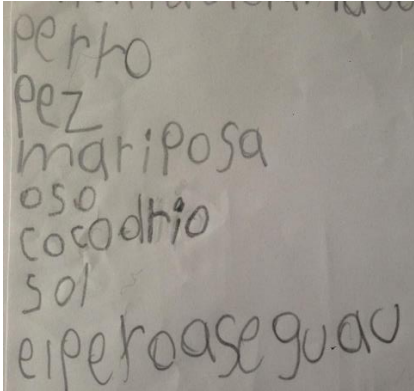 perro
pez
mariposa
oso
cocodrio
sol
elperoasegu.au